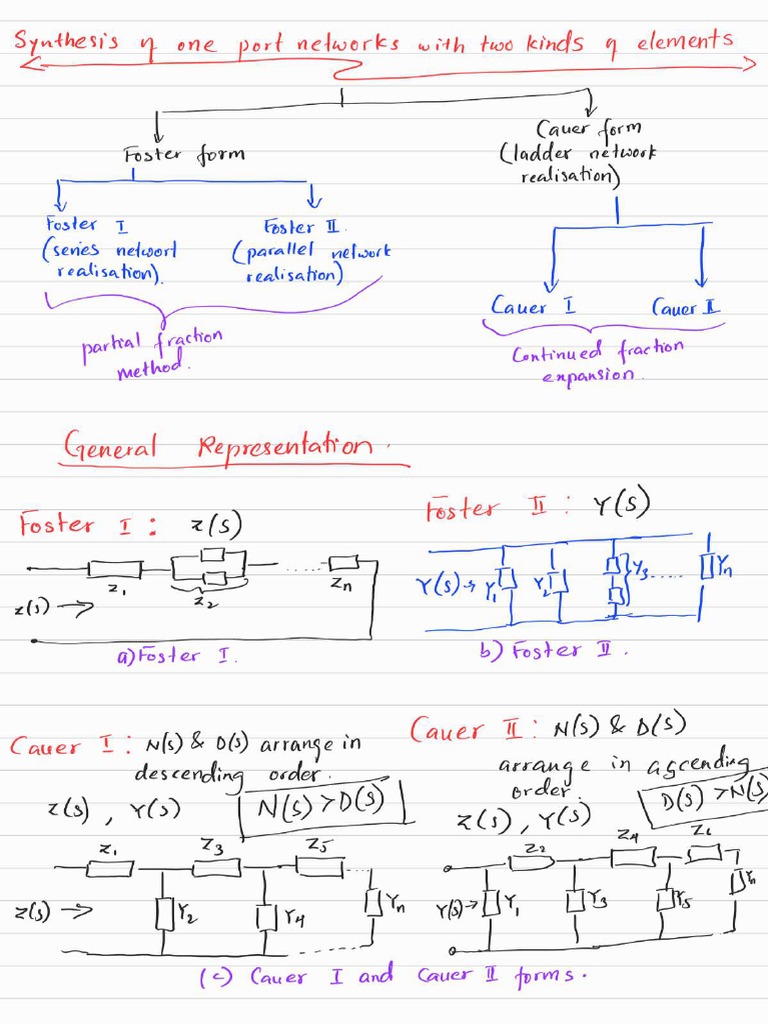 Synthesis of one port networks with two kinds of elements
Foster form
Cauer form
(ladder network
realisation)
Foster I
(series networt
realisation).
Foster II.
(parallel network
realisation)
partial fraction
method.
Cauer I
Cauer II
Continued fraction
expansion.
General Representation.
Foster I : z(s)
z1
z2
zn
z(s) →
a) Foster I.
Foster II : Y(s)
Y(s) →
Y1
Y2
Y3
.....
Yn
b) Foster II.
Cauer I : N(s) & D(s) arrange in
descending order.
z(s) , Y(s)
N(s) > D(s)
z1
z3
z5
z(s) →
Y2
Y4
Yn
Cauer II : N(s) & D(s)
arrange in ascending
order.
z(s) , Y(s)
D(s) > N(s)
z2
z4
z6
Y(s) →
Y1
Y3
Y5
Yn
(c) Cauer I and Cauer II forms.